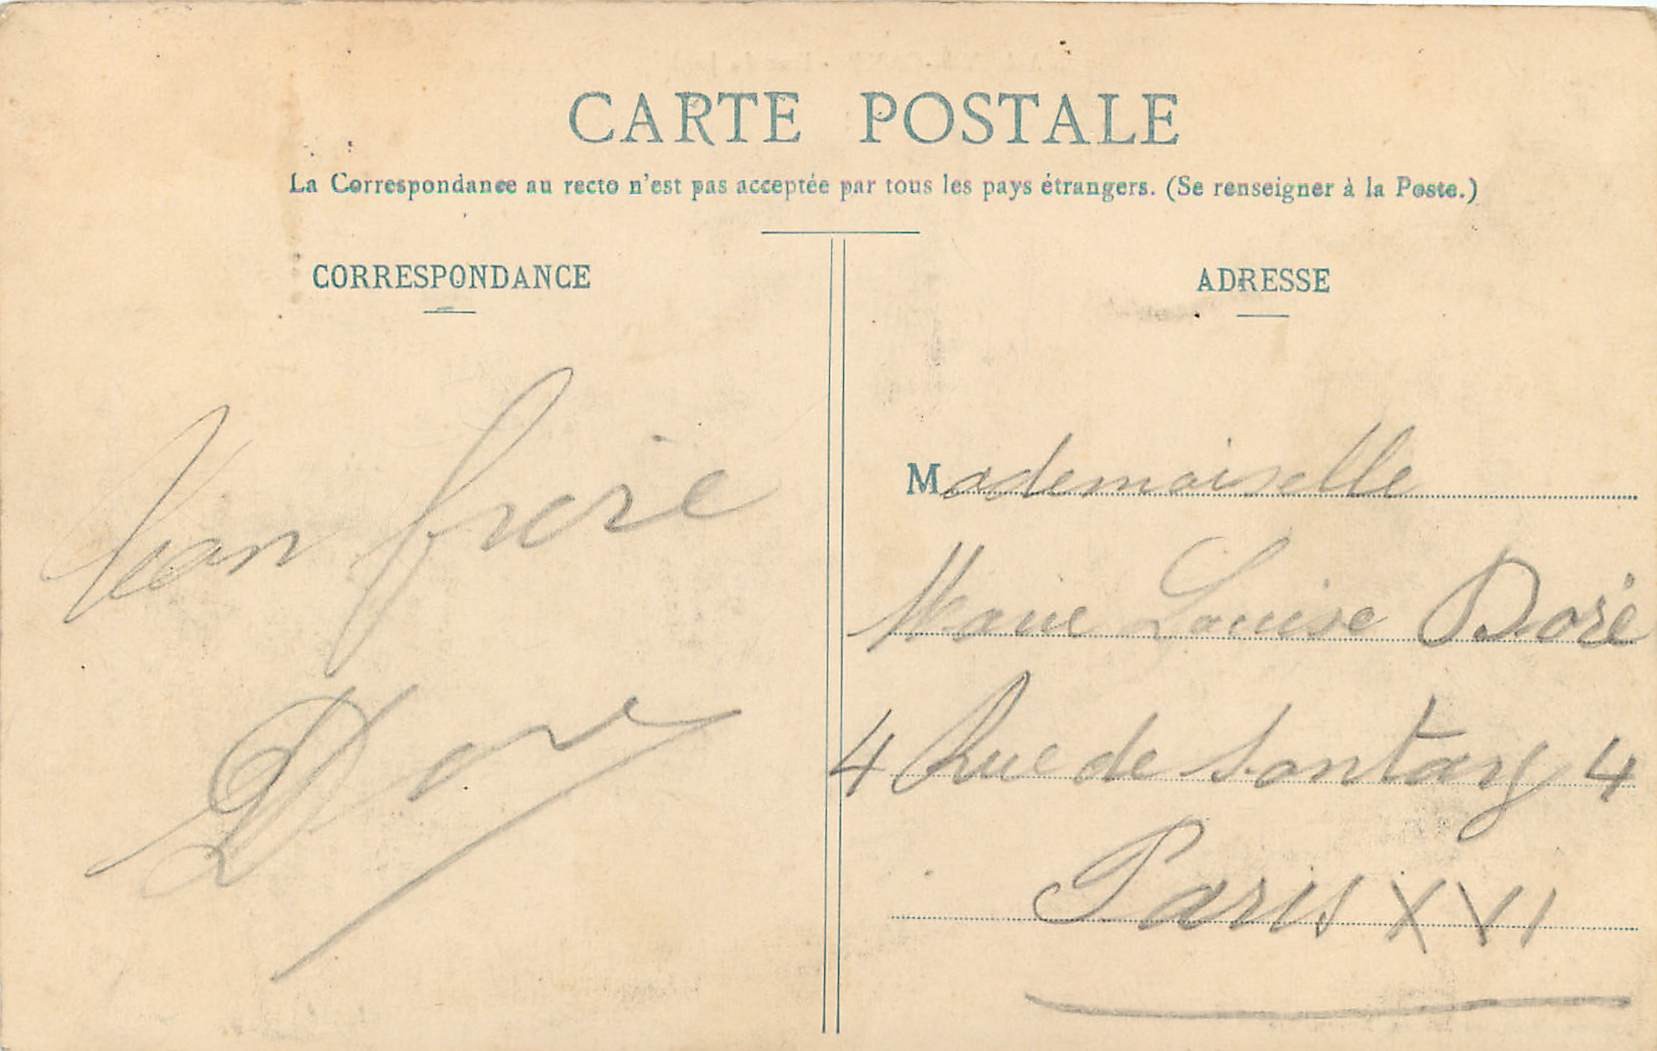 CARTE POSTALE
La Correspondance au recto n'est pas acceptée par tous les pays étrangers. (Se renseigner à la Poste.)
CORRESPONDANCE
ADRESSE
frère
Dore
Mademoiselle
Marie Louise Doré
4 Rue de Sontay 4
Paris XVI